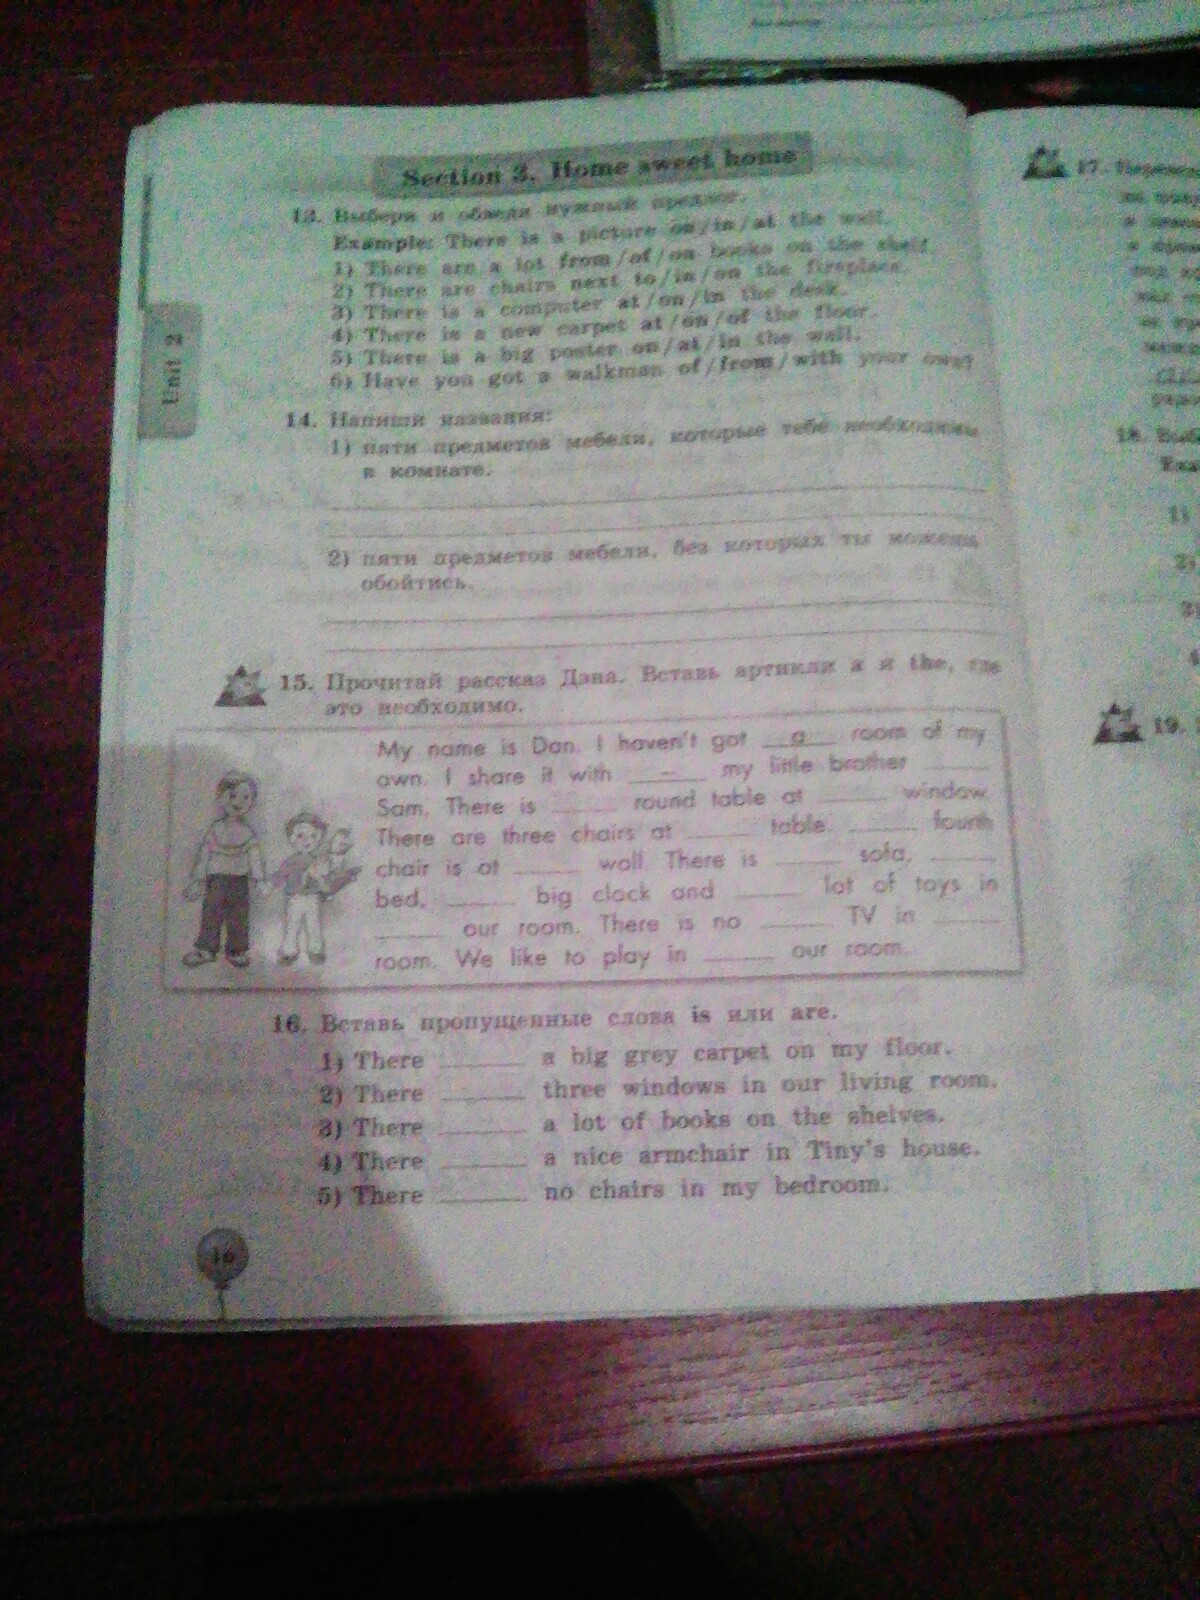 Section 3. Home sweet home
13. Выбери и обведи нужный предлог.
Example: There is a picture on/in/at the wall.
1) There are a lot from/of/on books on the shelf.
2) There are chairs next to/in/on the fireplace.
3) There is a computer at/on/in the desk.
4) There is a new carpet at/on/of the floor.
5) There is a big poster on/at/in the wall.
6) Have you got a walkman of/from/with your own?
Unit 2
14. Напиши названия:
1) пяти предметов мебели, которые тебе необходимы
в комнате.
2) пяти предметов мебели, без которых ты можешь
обойтись.
15. Прочитай рассказ Дэна. Вставь артикли a и the, где
это необходимо.
My name is Dan. I haven't got __a__ room of my
own. I share it with __–__ my little brother ____
Sam. There is ____ round table at ____ window.
There are three chairs at ____ table. ____ fourth
chair is at ____ wall. There is ____ sofa, ____
bed, ____ big clock and ____ lot of toys in
____ our room. There is no ____ TV in ____
room. We like to play in ____ our room.
16. Вставь пропущенные слова is или are.
1) There ____ a big grey carpet on my floor.
2) There ____ three windows in our living room.
3) There ____ a lot of books on the shelves.
4) There ____ a nice armchair in Tiny's house.
5) There ____ no chairs in my bedroom.
16
17.
18.
1)
2)
3)
4
19.